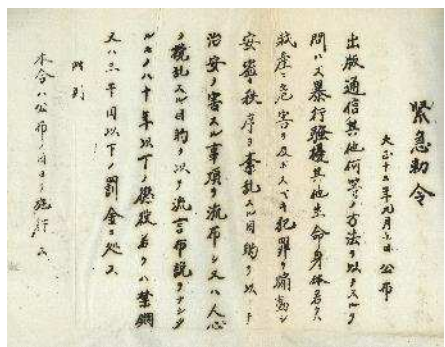 緊急勅令
大正十二年九月七日公布
出版通信其他何等ノ方法ヲ以テスルヲ
問ハズ暴行騒擾其他生命身体若クハ
財産ニ危害ヲ及ボスベキ犯罪ヲ煽動シ
安寧秩序ヲ紊乱スル目的ヲ以テ
治安ヲ害スル事項ヲ流布シ又ハ人心
ヲ撹乱スル目的ヲ以テ流言布説ヲナシタ
ルモノハ十年以下ノ懲役若クハ禁錮
又ハ三千円以下ノ罰金ニ処ス
附則
本令ハ公布ノ日ヨリ施行ス